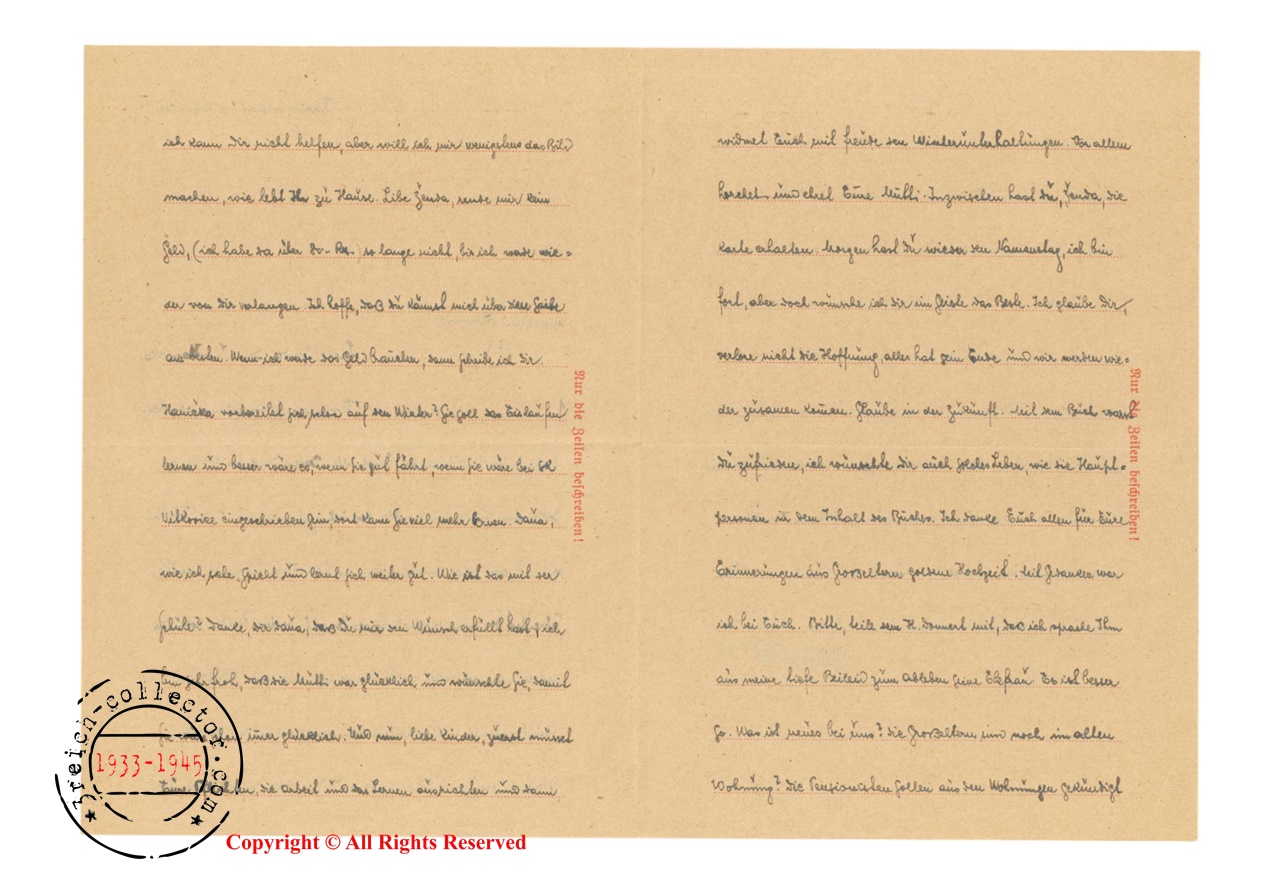 ich kann Dir nicht helfen, aber will ich mir wenigstens das Bild
machen, wie lebt Ihr zu Hause. Libe Ženda, sende mir kein
Geld, (ich habe da über 80.- Rm.) so lange nicht, bis ich werde wie=
der von Dir verlangen. Ich hoffe, daß du kannst mich über diese
Wenn ich werde das Geld brauchen, dann schreibe ich dir.
Hanička vorbereitet sich schon auf den Winter? Sie soll das Eislaufen
lernen und besser wäre es, wenn sie gut fährt, wenn sie wäre bei
Vitkovice eingeschrieben sein, dort kann sie viel mehr lernen. Daňa,
wie ich sehe, spielt und lernt sich weiter gut. Wie ist das mit der
Danke, dir Daňa, daß Du mir den Wunsch erfüllt hast, ich
bin sehr froh, daß die Mutti war glücklich und wünschte Sie, damit
Sie imer glücklich. Und nun, liebe Kinder, zuerst müsset
Eure die Arbeit und das Lernen ausrichten und dann
Nur die Zeilen beschreiben!
widmet Euch mit freude den Winterunterhaltungen. Vor allem
horchet und ehret Eure Mutti. Inzwischen hast du, Ženda, die
Karte erhalten. Morgen hast du wieder den Namenstag, ich bin
fort, aber doch wünsche ich dir im Geiste das Beste. Ich glaube Dir,
verlore nicht die Hoffnung, alles hat sein Ende und wir werden wie=
der zusamen komen. Glaube in der Zukunft. Mit dem Buch warst
Du zufrieden, ich wünschte Dir auch solches Leben, wie die Haupt=
personen in dem Inhalt des Buches. Ich danke Euch allen für Eure
Erinnerungen aus Großeltern goldene Hochzeit. Mit Gedanken war
ich bei Euch. Bitte, teile dem H. Donnert mit, daß ich sprache Ihm
aus meine tiefe Beileid zum Ableben seine Ehefrau Es ist besser
so. Was ist neues bei uns? Die Großeltern sind noch in alten
Wohnung? Die Pensionisten sollen aus den Wohnungen gekündigt
Nur die Zeilen beschreiben!
3reich-collector.com
1933-1945
Copyright © All Rights Reserved